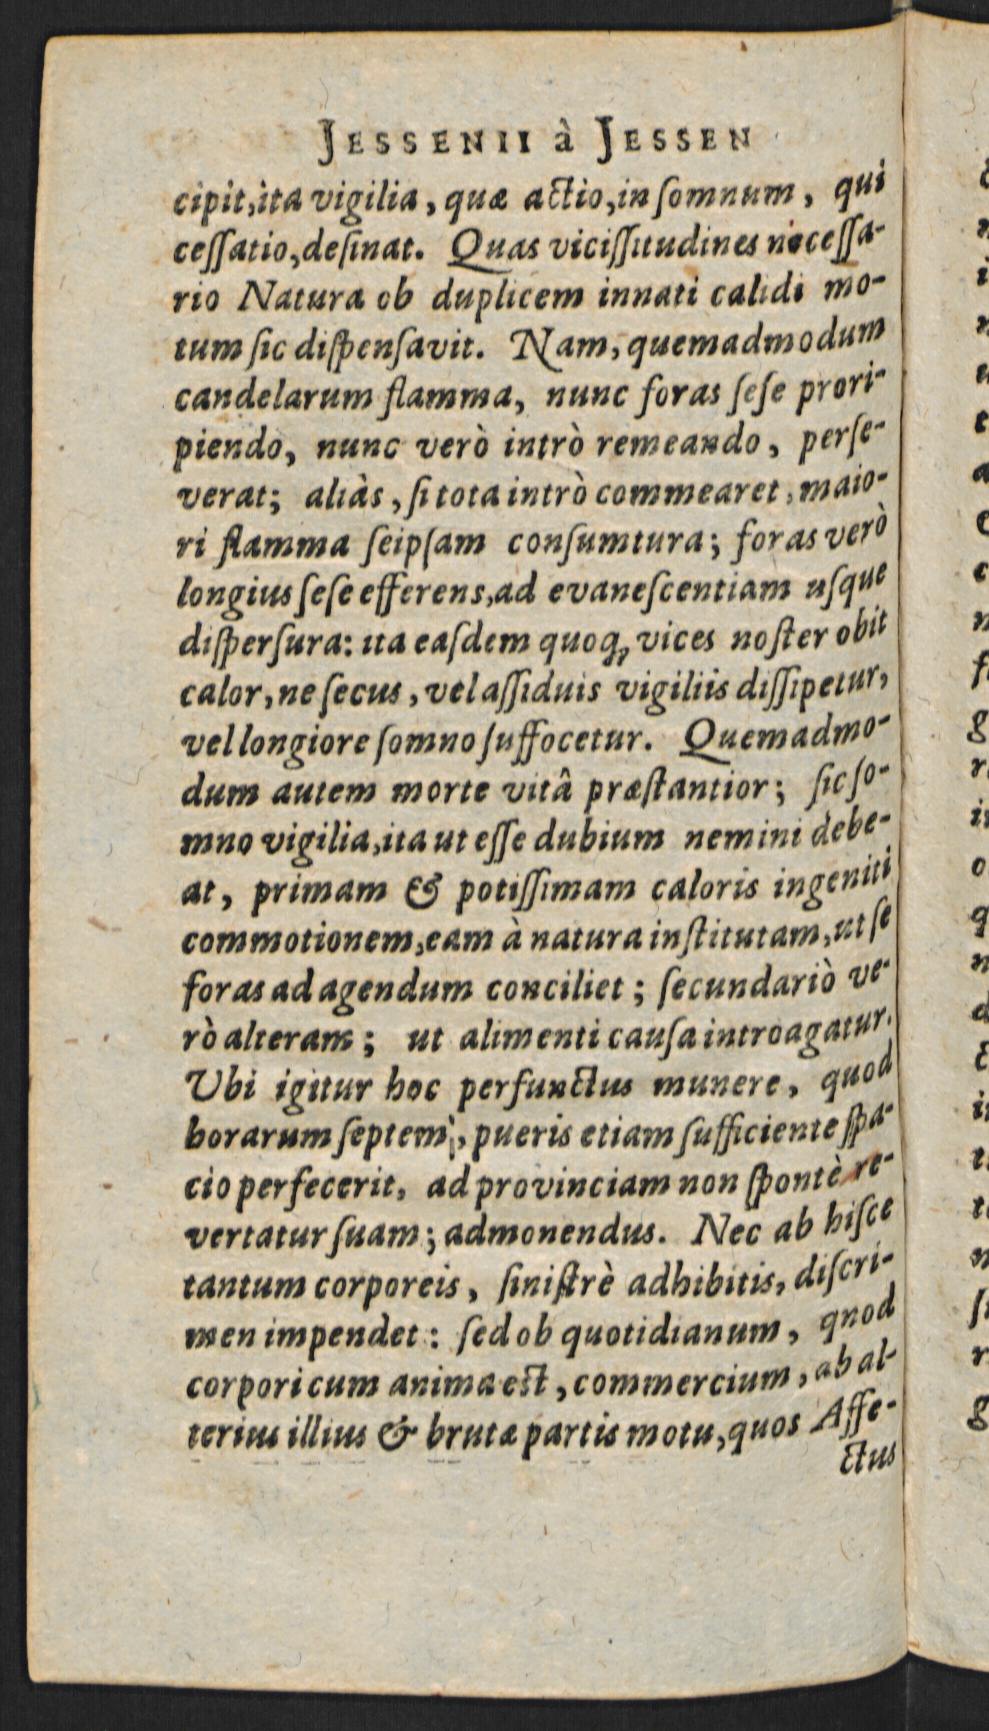 JESSENII à JESSEN
cipit, ita vigilia, quæ actio, in ſomnum, qui
ceſſatio, deſinat. Quas viciſſitudines neceſſa-
rio Natura ob duplicem innati calidi mo-
tum ſic diſpenſavit. Nam, quemadmodum
candelarum flamma, nunc foras ſeſe prori-
piendo, nunc verò intrò remeando, perſe-
verat; aliàs, ſi tota intrò commearet, maio-
ri flamma ſeipſam conſumtura; foras verò
longius ſeſe efferens, ad evaneſcentiam uſque
diſperſura: ita eaſdem quoq; vices noſter obit
calor, ne ſecus, vel aſſiduis vigiliis diſſipetur,
vel longiore ſomno ſuffocetur. Quemadmo-
dum autem morte vitâ præſtantior; ſic ſo-
mno vigilia, ita ut eſſe dubium nemini debe-
at, primam & potiſſimam caloris ingeniti
commotionem, eam à natura inſtitutam, ut ſe
foras ad agendum conciliet; ſecundariò ve-
rò alteram; ut alimenti cauſa introagatur.
Ubi igitur hoc perfunctus munere, quod
horarum ſeptem, pueris etiam ſufficiente ſpa-
cio perfecerit, ad provinciam non ſpontè re-
vertatur ſuam; admonendus. Nec ab hiſce
tantum corporeis, ſiniſtrè adhibitis, diſcri-
men impendet: ſed ob quotidianum, qnod
corpori cum anima est, commercium, ab al-
terius illius & brutæ partis motu, quos Affe-
ctus